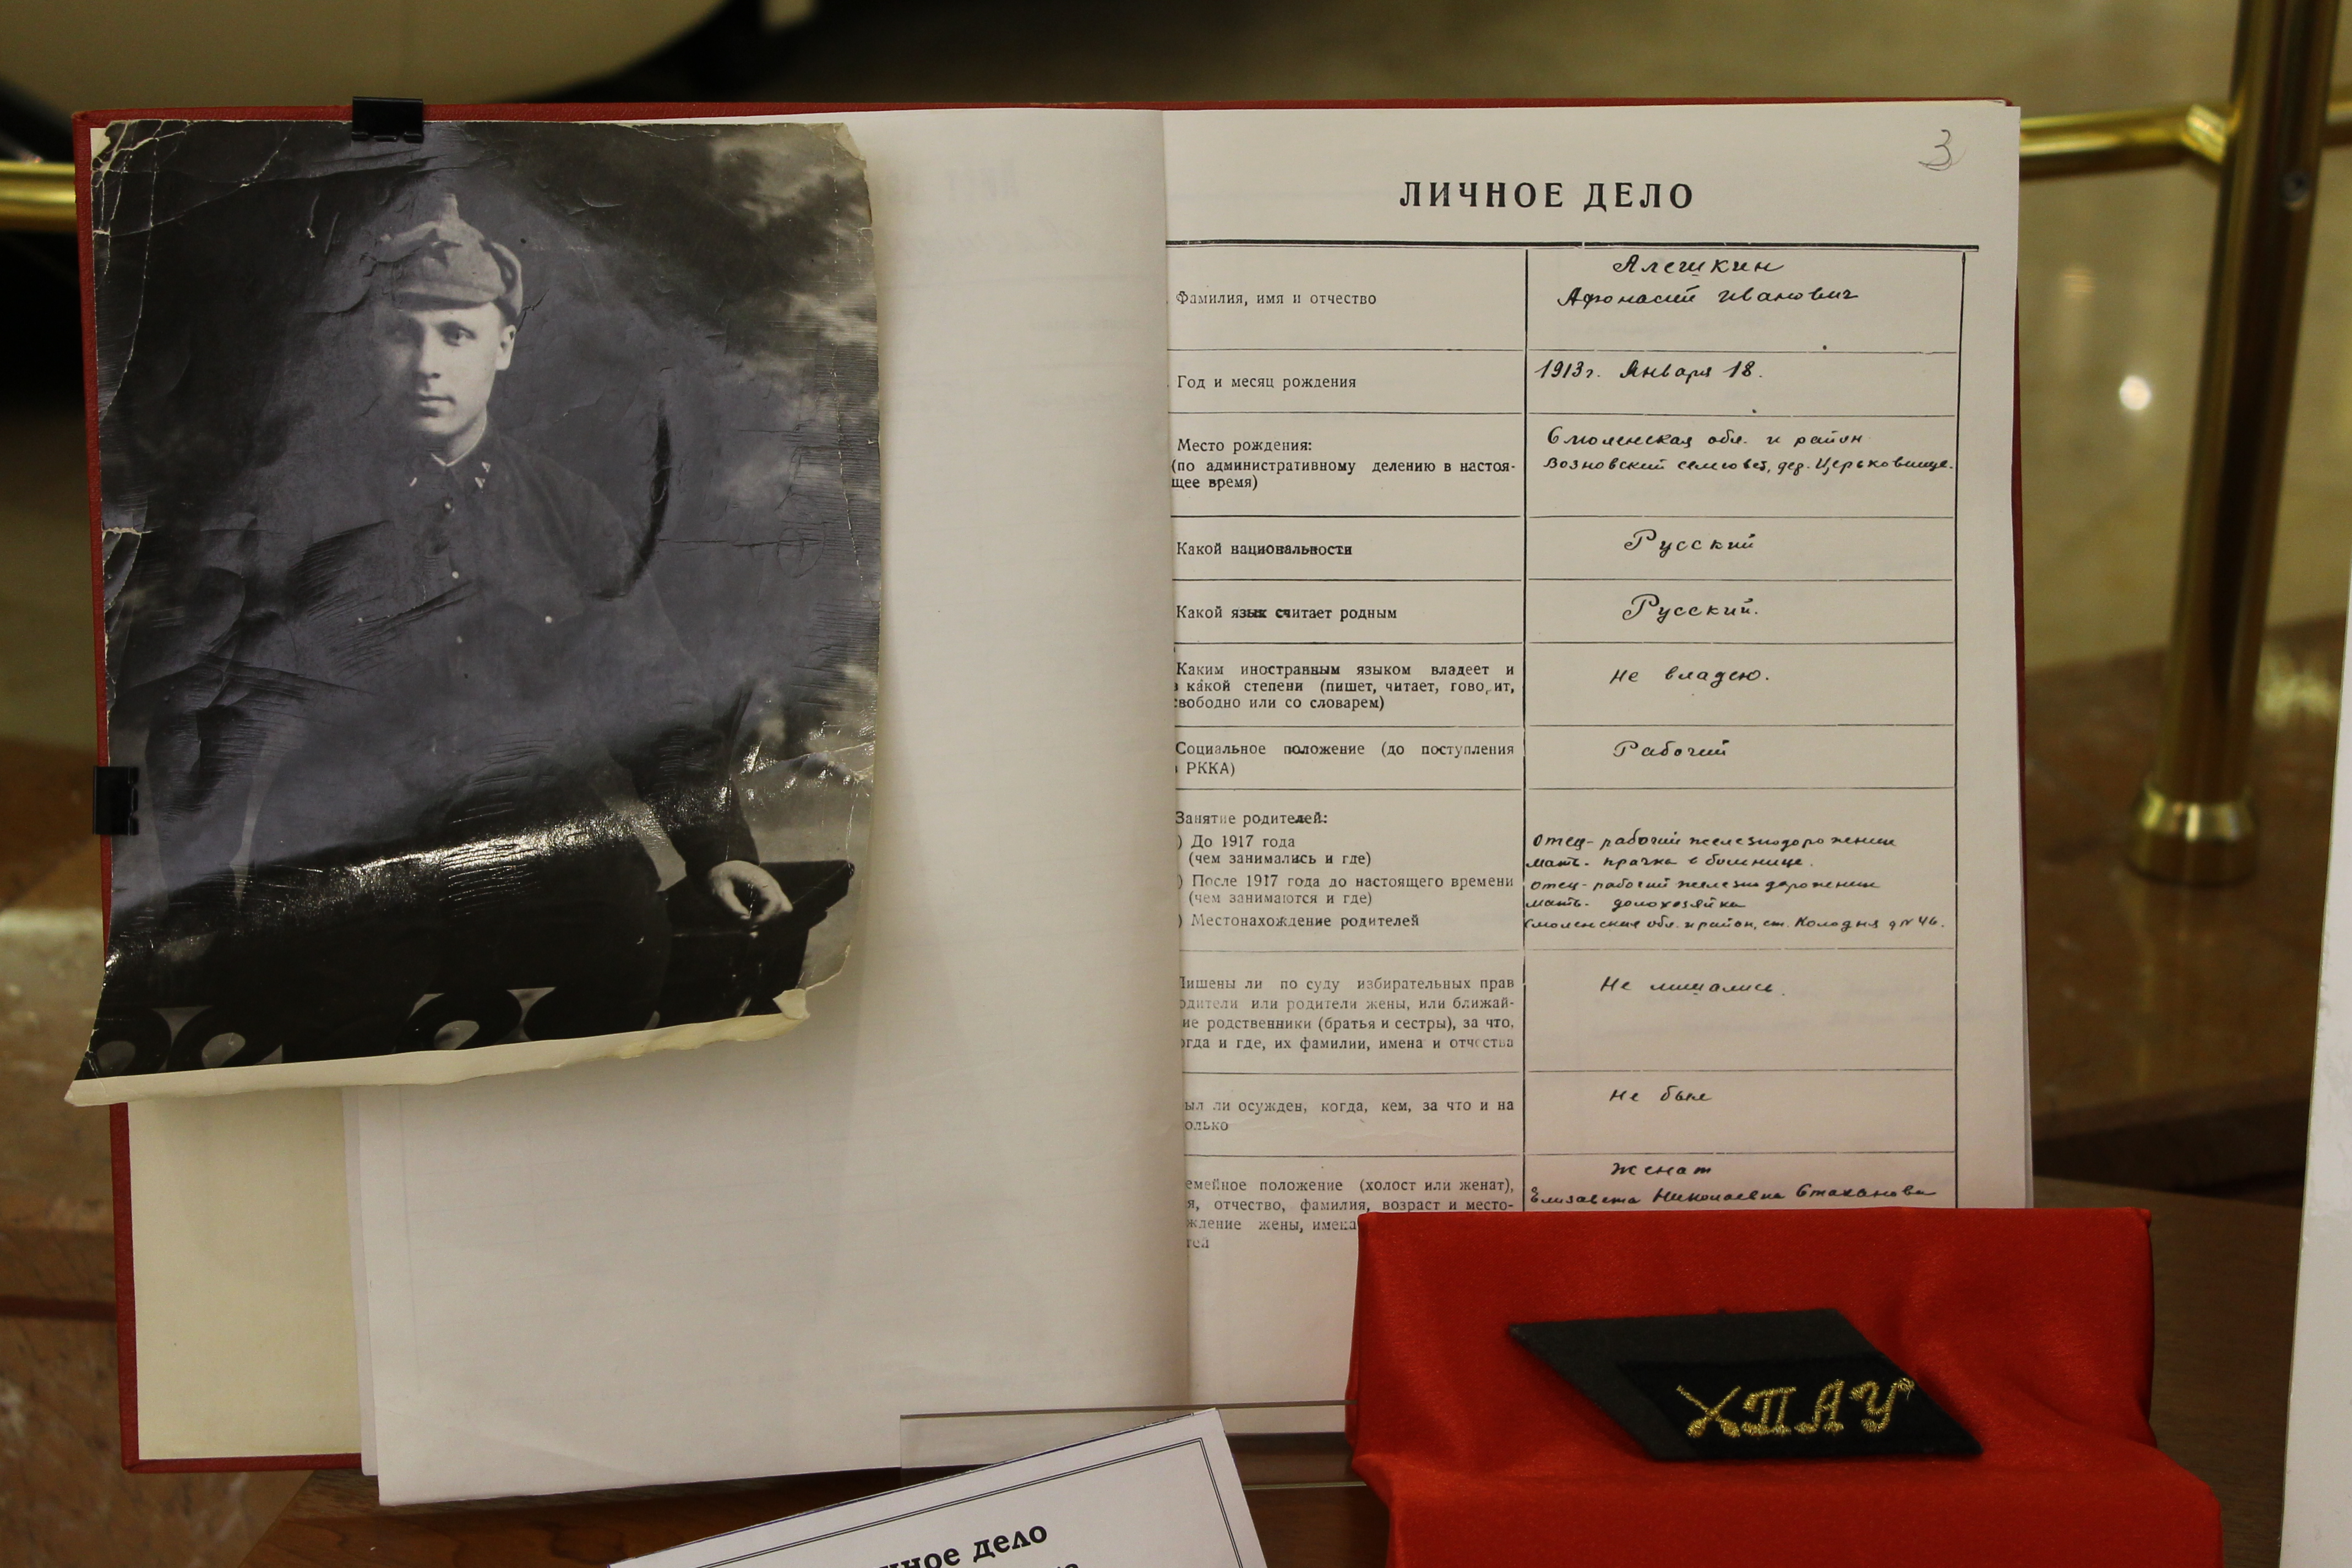 3
ЛИЧНОЕ ДЕЛО
Фамилия, имя и отчество
Алешкин
Афонасий Иванович
Год и месяц рождения
1913г. Января 18.
Место рождения:
(по административному делению в настоя-
щее время)
Смоленская обл. и район
Возновский сельсовет, дер. Церьковище.
Какой национальности
Русский
Какой язык считает родным
Русский.
Каким иностранным языком владеет и
в какой степени (пишет, читает, говорит,
свободно или со словарем)
Не владею.
Социальное положение (до поступления
РККА)
Рабочий
Занятие родителей:
) До 1917 года
(чем занимались и где)
Отец - рабочий железнодорожник
мать - прачка в больнице.
) После 1917 года до настоящего времени
(чем занимаются и где)
Отец - рабочий железнодорожник
мать - домохозяйка
) Местонахождение родителей
Смоленская обл. и район, ст. Колодня д № 46.
Лишены ли по суду избирательных прав
одители или родители жены, или ближай-
ие родственники (братья и сестры), за что,
огда и где, их фамилии, имена и отчества
Не лишались.
ыл ли осужден, когда, кем, за что и на
олько
Не был
емейное положение (холост или женат),
я, отчество, фамилия, возраст и место-
ждение жены, имена
тей
Женат
Елизавета Николаевна Стаханова
ХПАУ
чное дело